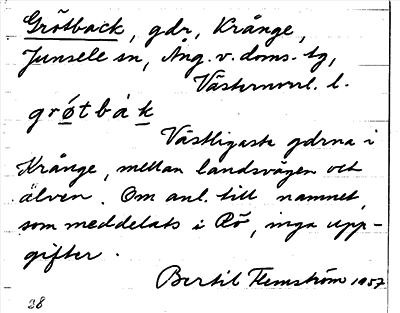 Grötback, gdr, Krånge,
Junsele sn, Ång. v. doms. tg,
Västernorrl. l.
grötbàk
Västligaste gdrna i
Krånge, mellan landsvägen och
älven. Om anl. till namnet,
som meddelats i Rö, inga upp-
gifter.
Bertil Flemström 1957
28